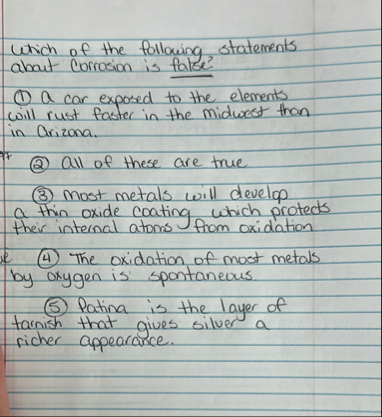 which of the following statements
about Corrosion is false?
① a car exposed to the elements
will rust faster in the midwest than
in arizona.
② all of these are true
③ most metals will develop
a thin oxide coating which protects
their internal atoms from oxidation
④ The oxidation of most metals
by oxygen is spontaneous
⑤ Patina is the layer of
tarnish that gives silver a
richer appearance.